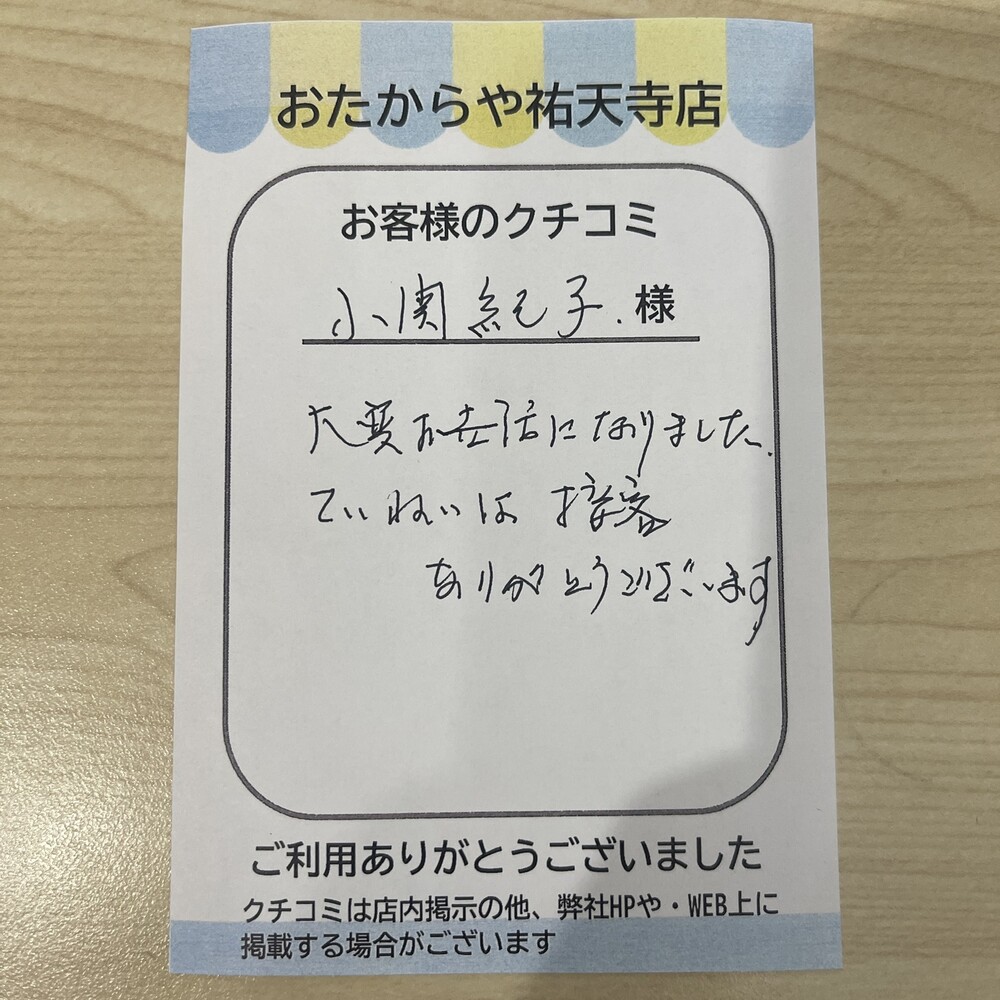 おたからや祐天寺店
お客様のクチコミ
小関紀子.様
大変お世話になりました.
ていねいな 接客
ありがとうございます
ご利用ありがとうございました
クチコミは店内掲示の他、弊社HPや・WEB上に
掲載する場合がございます